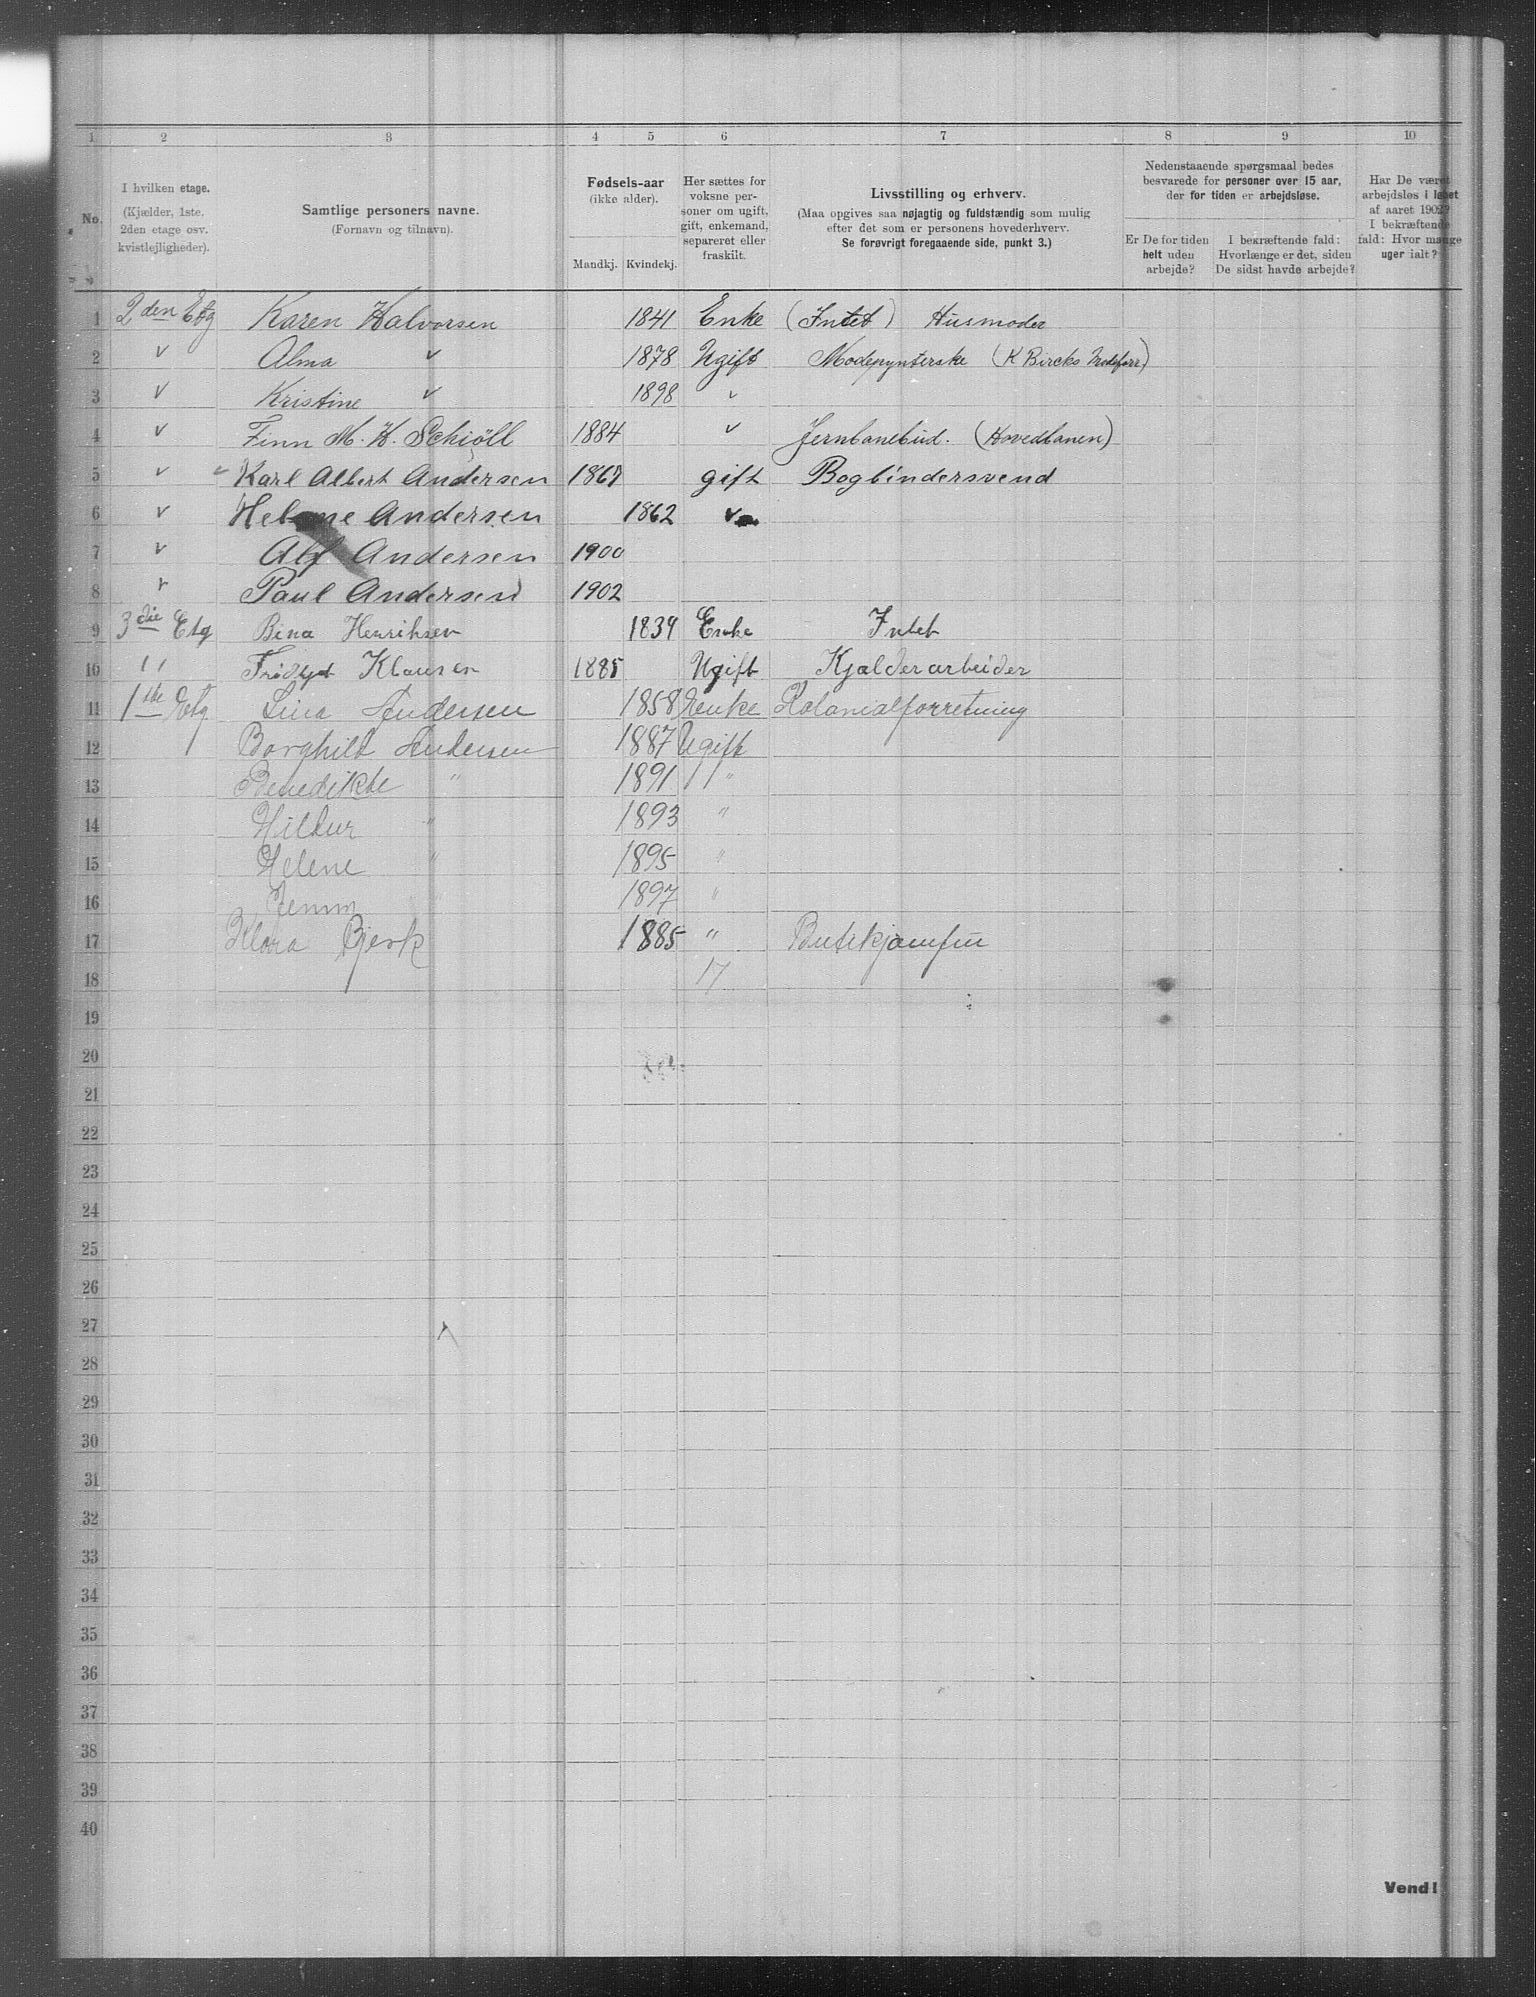 1 2 3 4 5 6 7 8 9 10
No.
I hvilken etage.
(Kjælder, 1ste.
2den etage osv.
kvistlejligheder).
Samtlige personers navne.
(Fornavn og tilnavn).
Fødsels-aar
(ikke alder).
Mandkj. Kvindekj.
Her sættes for
voksne per-
soner om ugift,
gift, enkemand,
separeret eller
fraskilt.
Livsstilling og erhverv.
(Maa opgives saa nøjagtig og fuldstændig som mulig
efter det som er personens hovederhverv.
Se forøvrigt foregaaende side, punkt 3.)
Nedenstaaende spørgsmaal bedes
besvarede for personer over 15 aar,
der for tiden er arbejdsløse.
Er De for tiden
helt uden
arbejde?
I bekræftende fald:
Hvorlænge er det, siden
De sidst havde arbejde?
Har De været
arbejdsløs i løbet
af aaret 1902?
I bekræftende
fald: Hvor mange
uger ialt?
1 2den Etg Karen Halvorsen 1841 Enke (Intet) Husmoder
2 v Alma v 1878 Ugift Modepynterske (K Bircks Modeforr)
3 v Kristine v 1898 v
4 v Finn M. H. Schiöll 1884 v Jernbanebud. (Hovedbanen)
5 v Karl Albert Andersen 1867 gift Bogbindersvend
6 v Andersen 1862 v
7 v Alf Andersen 1900
8 v Paul Andersen 1902
9 3die Etg Bina Henriksen 1839 Enke Intet
10 " Klausen 1885 Ugift Kjælderarbeider
11 1ste Etg Lina Andersen 1858 Enke Kolonialforretning
12 Borghild Andersen 1887 Ugift
13 Benedikte " 1891 "
14 Hildur " 1893 "
15 Helene " 1895 "
16 " 1897 "
17 Klara Bjerk 1885 "
18 17
19
20
21
22
23
24
25
26
27
28
29
30
31
32
33
34
35
36
37
38
39
40
Vend!